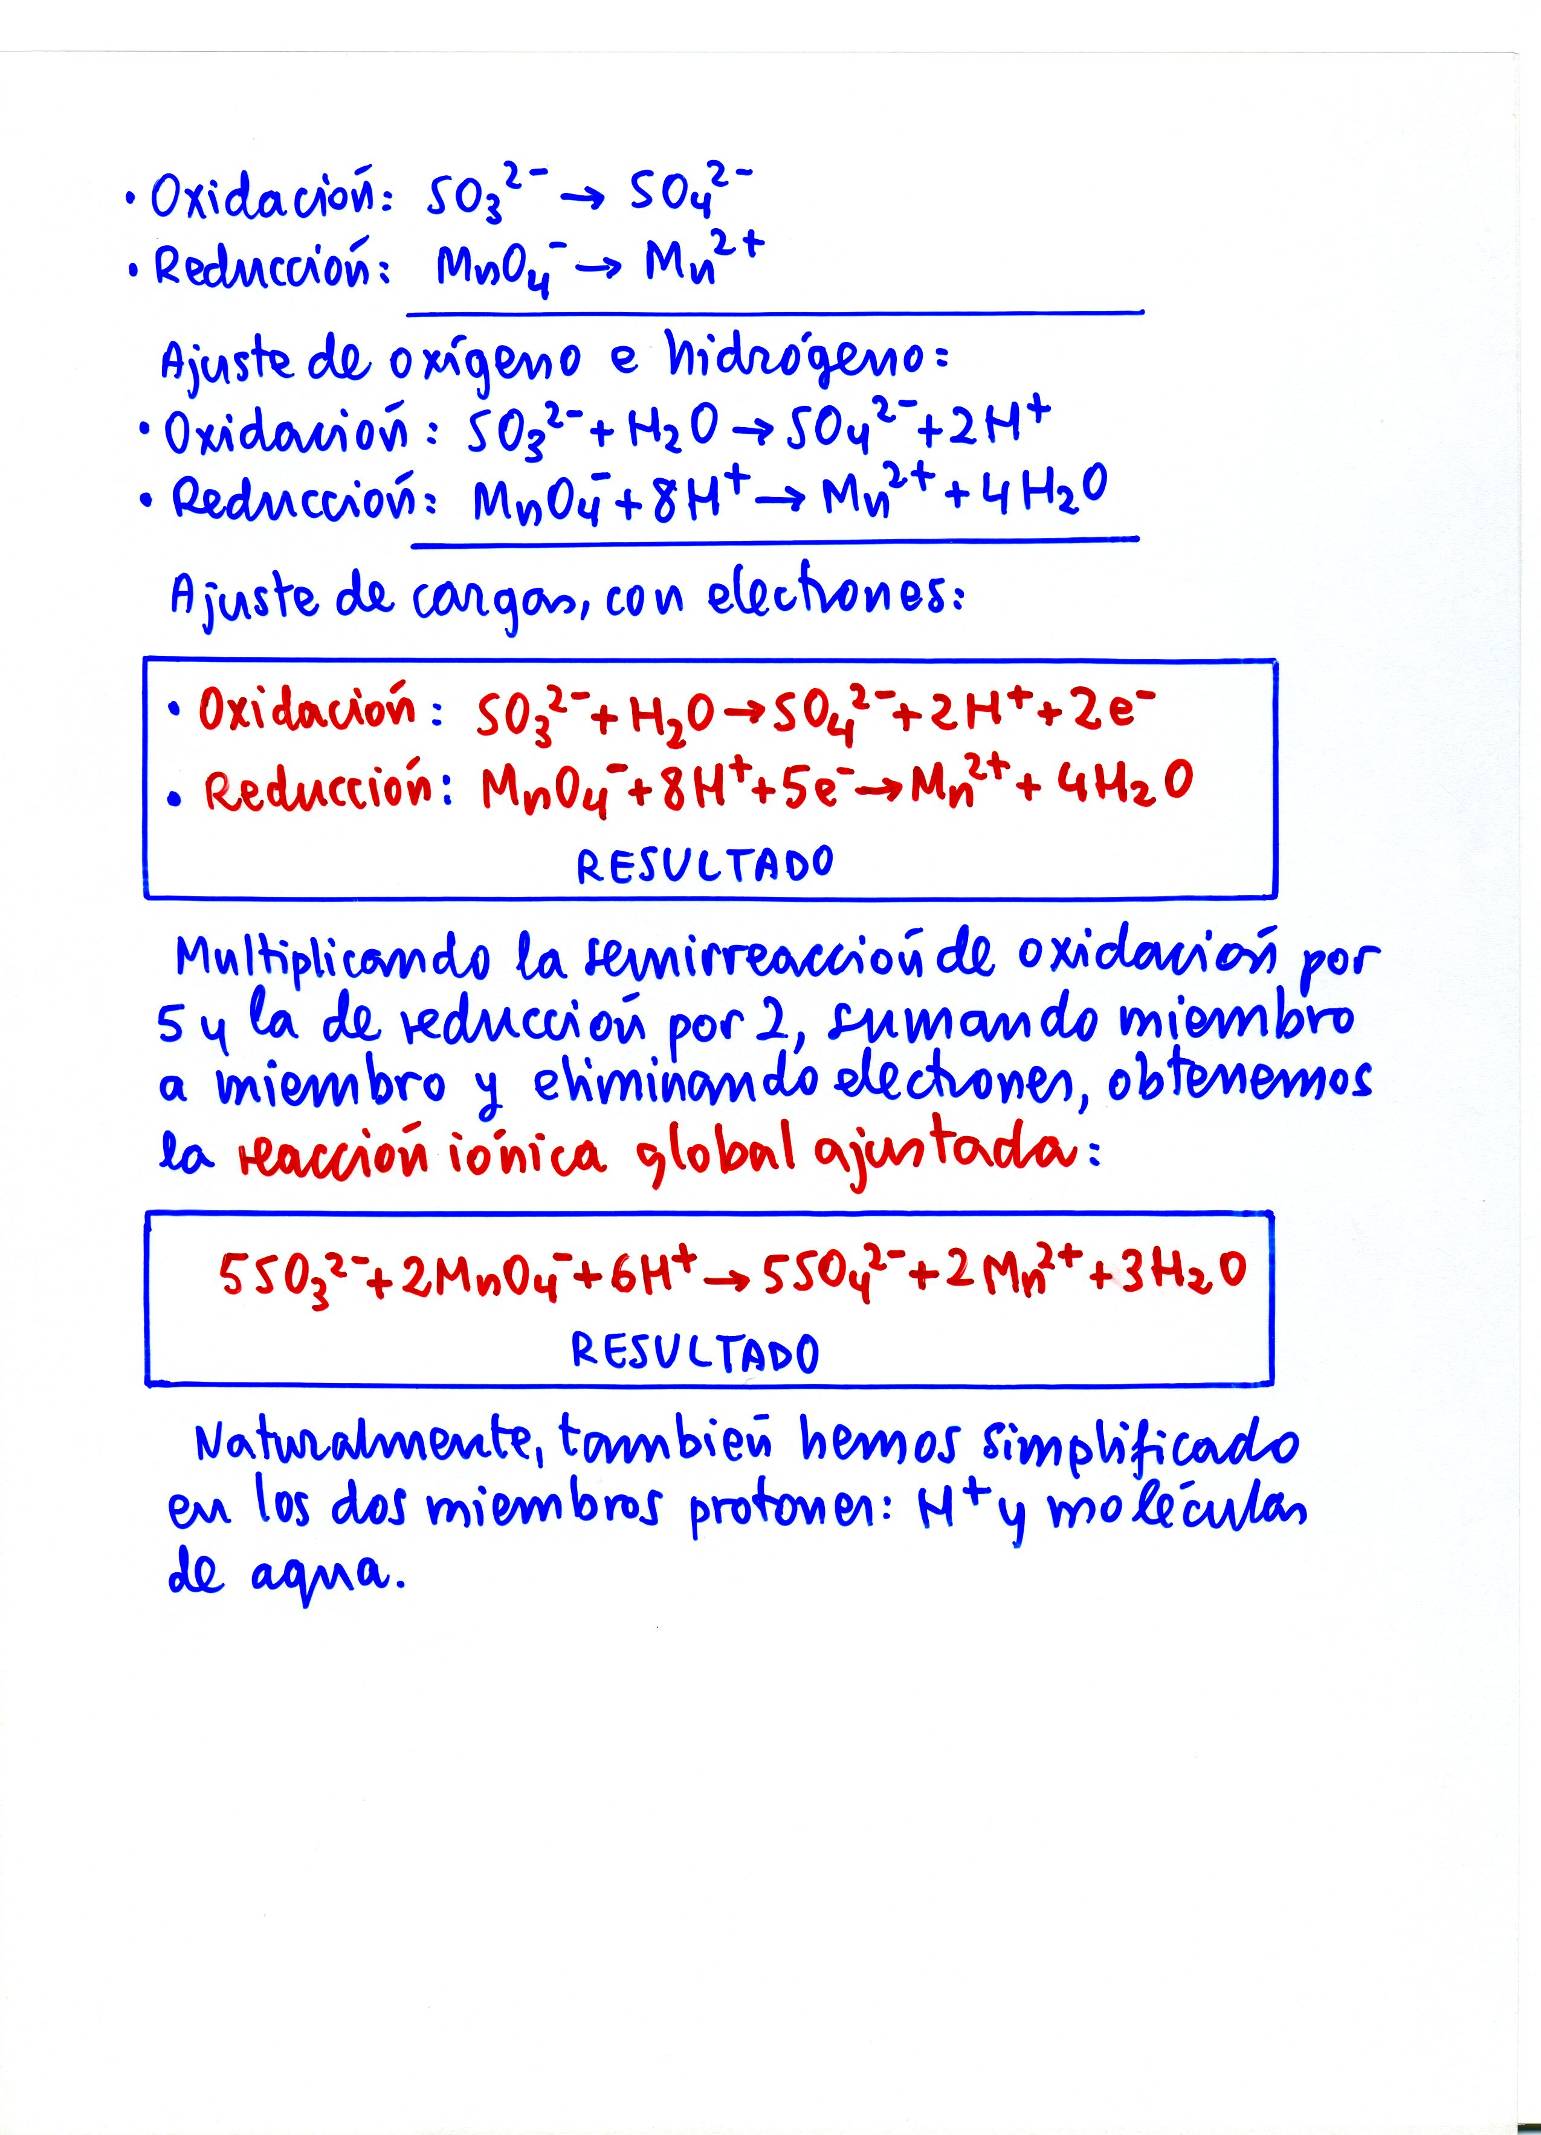 • Oxidación: SO₃²⁻ → SO₄²⁻
• Reducción: MnO₄⁻ → Mn²⁺
Ajuste de oxígeno e hidrógeno:
• Oxidación: SO₃²⁻ + H₂O → SO₄²⁻ + 2H⁺
• Reducción: MnO₄⁻ + 8H⁺ → Mn²⁺ + 4H₂O
Ajuste de cargas, con electrones:
• Oxidación: SO₃²⁻ + H₂O → SO₄²⁻ + 2H⁺ + 2e⁻
• Reducción: MnO₄⁻ + 8H⁺ + 5e⁻ → Mn²⁺ + 4H₂O
RESULTADO
Multiplicando la semirreacción de oxidación por
5 y la de reducción por 2, sumando miembro
a miembro y eliminando electrones, obtenemos
la reacción iónica global ajustada:
5SO₃²⁻ + 2MnO₄⁻ + 6H⁺ → 5SO₄²⁻ + 2Mn²⁺ + 3H₂O
RESULTADO
Naturalmente, también hemos simplificado
en los dos miembros protones: H⁺ y moléculas
de agua.